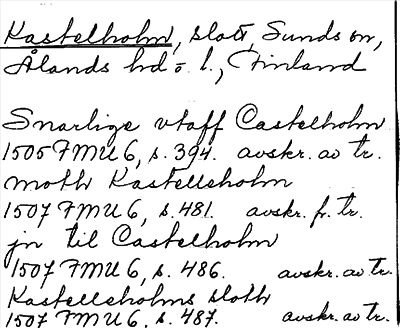 Kastelholm, slott, Sunds sn,
Ålands hd o. l., Finland
Snarlige vtaff Castelholm
1505 FMU 6, s. 394. avskr. av tr.
moth Kastelleholm
1507 FMU 6, s. 481. avskr. fr. tr.
jn til Castelholm
1507 FMU 6, s. 486. avskr. av tr.
Kastelleholms sloth
1507 FMU 6, s. 487. avskr. av tr.